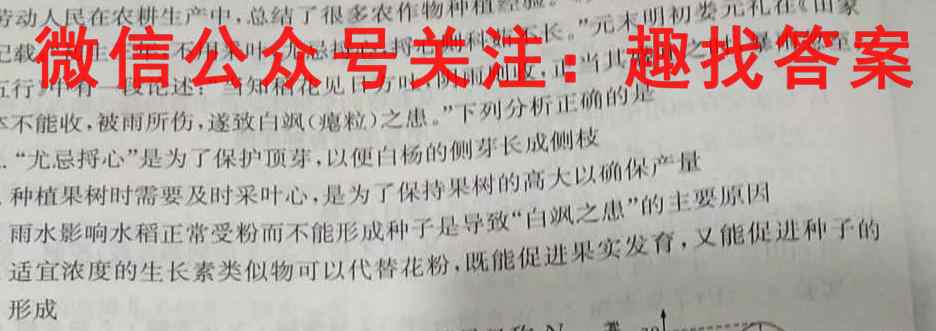 劳动人民在农耕生产中,总结了很多农作物种植经验。
不长。”元末明初娄元礼在《田家
微信公众号关注：趣找答案
五行》中有一段论述：“当知稻花见日方吐,
本不能收,被雨所伤,遂致白飒(瘪粒)之患。”下列分析正确的是
“尤忌捋心”是为了保护顶芽,以便白杨的侧芽长成侧枝
种植果树时需要及时采叶心,是为了保持果树的高大以确保产量
雨水影响水稻正常受粉而不能形成种子是导致“白飒之患”的主要原因
适宜浓度的生长素类似物可以代替花粉,既能促进果实发育,又能促进种子的
形成